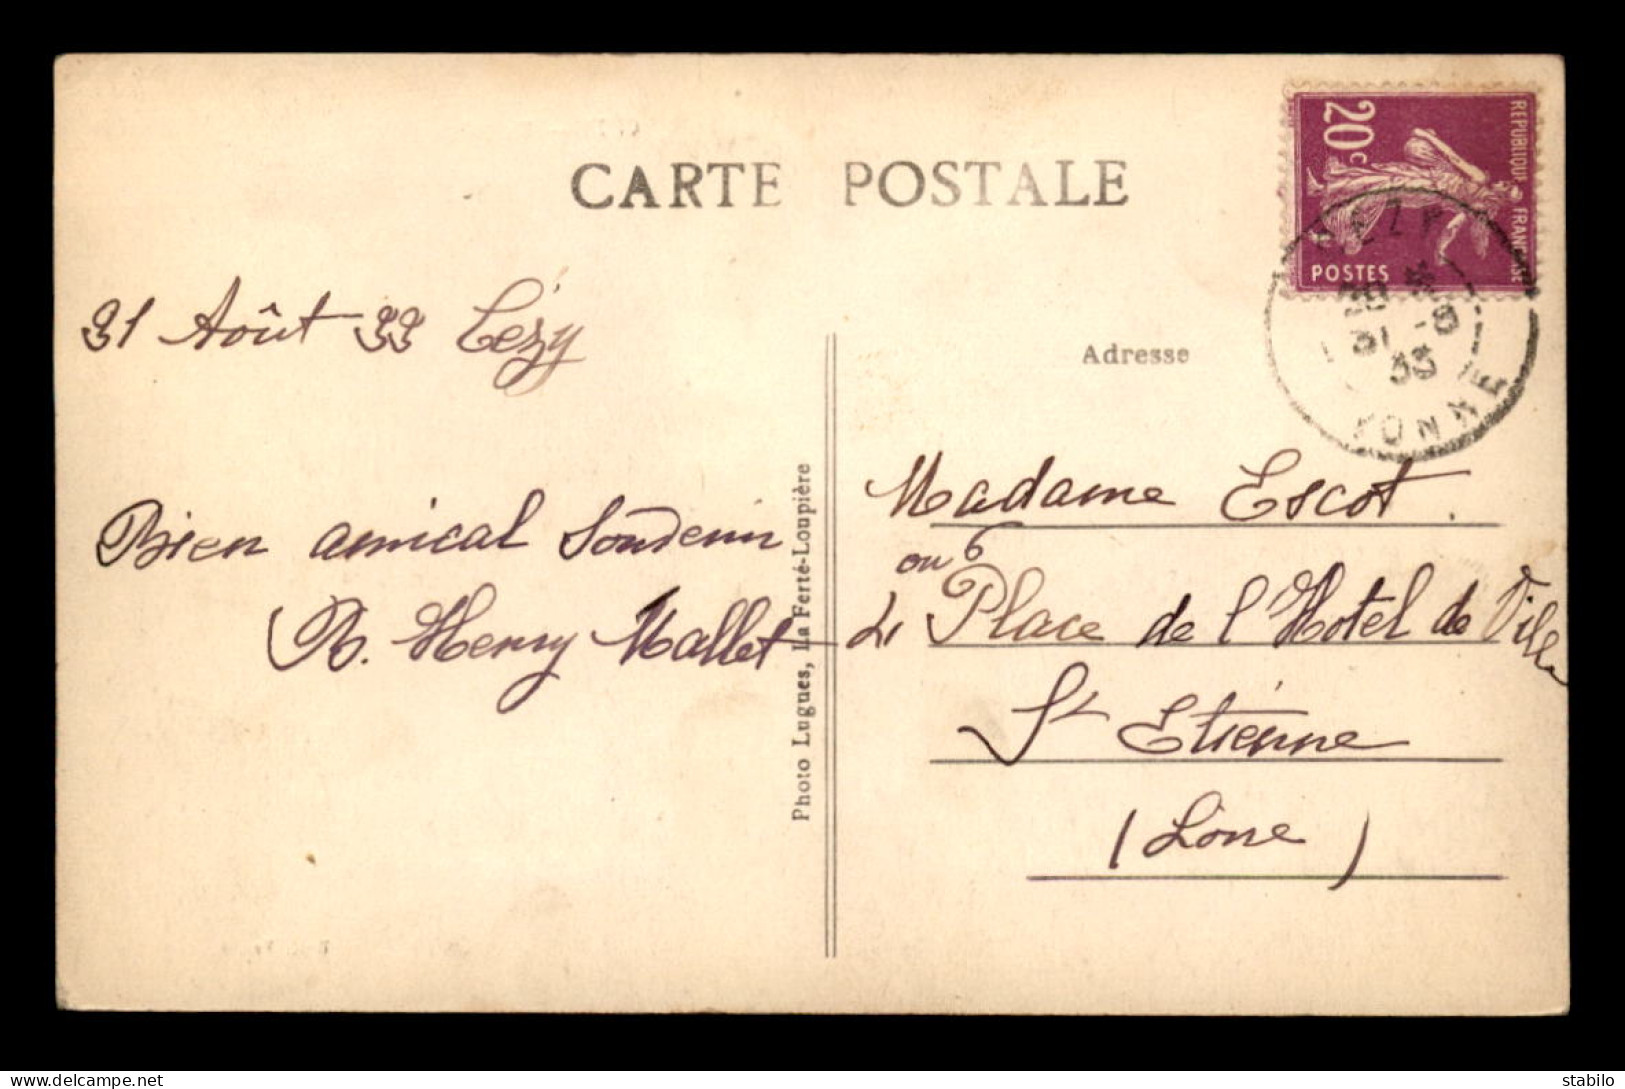 CARTE POSTALE
REPUBLIQUE FRANÇAISE
20c
POSTES
31 Août 33 Cézy
31 -8
33
YONNE
Adresse
Bien amical souvenir
R. Henry Mallet
Photo Lugues, La Ferté-Loupière
Madame Escot.
ou 6
4 Place de l'Hotel de Ville
St Etienne
(Loire)
delcampe.net
stabilo